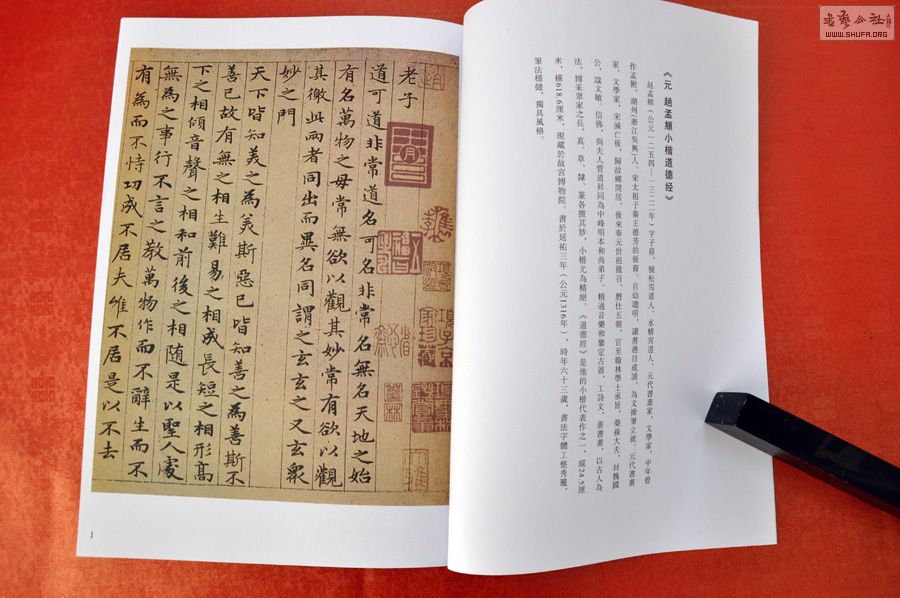 《元 趙孟頫小楷道德经》
赵孟頫(公元一二五四—一三二二年)字子昂，號松雪道人、水精宫道人，元代書畫家，文學家，中年曾
作孟俯，湖州(浙江吳興)人。宋太祖子秦王德芳的後裔。自幼聰明，讀書過目成誦，為文操筆立就。元代書畫
家，文學家，宋滅亡後，歸故鄉閒居，後來奉元世祖徵召，歷仕五朝，官至翰林學士承旨、榮禄大夫，封魏國
公，諡文敏。信佛，與夫人管道昇同為中峰明本和尚弟子。精通音樂和鑒定古器，工詩文，善書畫，以古人為
法，博采眾家之長，真、草、隸、篆各擅其妙，小楷尤為精絕。《道德經》是他的小楷代表作之一，縱24.5厘
米，橫618.6厘米，現藏於故宮博物院。書於延祐三年(公元1316年)，時年六十三歲，書法字體工整秀麗，
筆法穩健，獨具風格。
老子
道可道非常道名可名非常名無名天地之始
有名萬物之母常無欲以觀其妙常有欲以觀
其徼此兩者同出而異名同謂之玄玄之又玄衆
妙之門
天下皆知美之為美斯惡已皆知善之為善斯不
善已故有無之相生難易之相成長短之相形高
下之相傾音聲之相和前後之相随是以聖人處
無為之事行不言之教萬物作而不辭生而不
有為而不恃功成不居夫唯不居是以不去
1
WWW.SHUFA.ORG